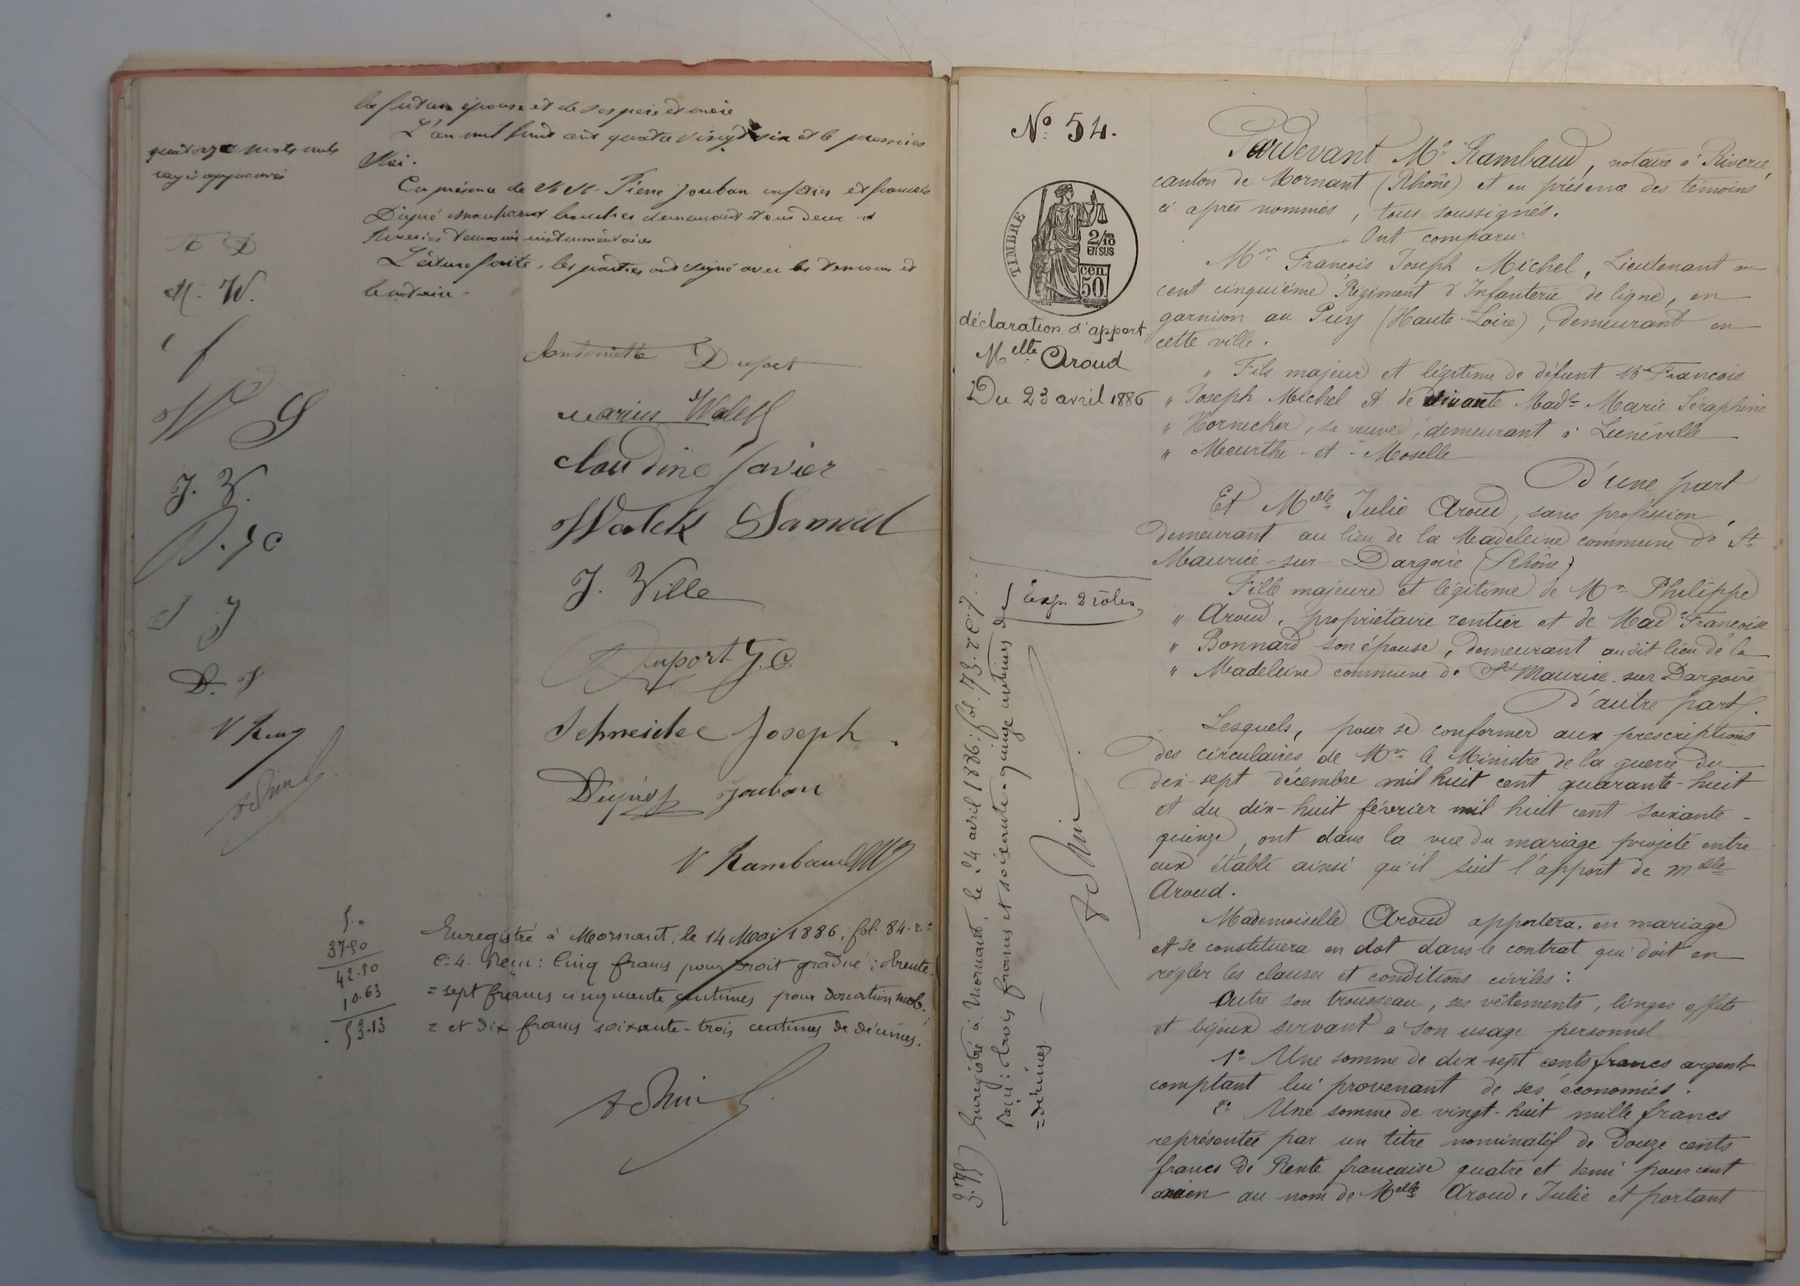 la future épouse et de ses père et mère
L'an mil huit cent quatre vingt six et le premier
Mai.
En présence de MM. Pierre Jouban cafetier et francois
Dupré boucher demeurant tous deux à
Riverie témoins instrumentaires
Lecture faite, les parties ont signé avec les témoins et
le notaire.
quatorze mots nuls
rayés approuvés
A D
M. W.
c f
W S
J. V.
D. J C
S J
D. J
V Ram
Antoinette Duport
Marius Walch
Claudine Javier
Walch Samuel
J. Ville
Duport J. C.
Schneider Joseph.
Dupré Jouban
V Rambaud
5."
37.50
42.50
10.63
53.13
Enregistré à Mornant, le 14 Mai 1886, fol. 84. r°
c. 4. Reçu: Cinq francs pour droit gradué; trente
=sept francs cinquante centimes pour donation mob.;
= et dix francs soixante-trois centimes de décimes.
N° 54.
TIMBRE
2/10 EN SUS
50 cen
déclaration d'apport
Melle Aroud
Du 23 avril 1886
Exp. 2 rôles
Enregistré à Mornant, le 24 avril 1886; fol. 73. r° c. 7.
Reçu: trois francs et soixante-quinze centimes de
=décimes.
3.75
Pardevant Me Rambaud, notaire à Riverie,
canton de Mornant (Rhône) et en présence des témoins
ci après nommés, tous soussignés.
Ont comparu:
Mr Francois Joseph Michel, Lieutenant au
cent cinquième Régiment d'Infanterie de ligne, en
garnison au Puy (Haute-Loire), demeurant en
cette ville.
" Fils majeur et légitime de défunt Mr Francois
" Joseph Michel et de vivante Made Marie Séraphine
" Hornecker, sa veuve, demeurant à Lunéville
" Meurthe-et-Moselle
D'une part
Et Melle Julie Aroud, sans profession,
demeurant au lieu de la Madeleine commune de St
Maurice-sur-Dargoire (Rhône)
Fille majeure et légitime de Mr Philippe
" Aroud, propriétaire rentier et de Made Francoise
" Bonnard son épouse, demeurant au dit lieu de la
" Madeleine commune de St Maurice-sur-Dargoire
D'autre part.
Lesquels, pour se conformer aux prescriptions
des circulaires de Mr le Ministre de la guerre du
dix-sept décembre mil huit cent quarante-huit
et du dix-huit février mil huit cent soixante-
quinze, ont dans la vue du mariage projeté entre
eux établi ainsi qu'il suit l'apport de Melle
Aroud.
Mademoiselle Aroud apportera, en mariage
et se constituera en dot dans le contrat qui doit en
régler les clauses et conditions civiles:
Outre son trousseau, ses vêtements, linges effets
et bijoux servant à son usage personnel
1° Une somme de dix-sept cents francs argent
comptant lui provenant de ses économies:
2° Une somme de vingt-huit mille francs
représentée par un titre nominatif de Douze cents
francs de Rente française quatre et demi pour cent
ancien au nom de Melle Aroud, Julie et portant